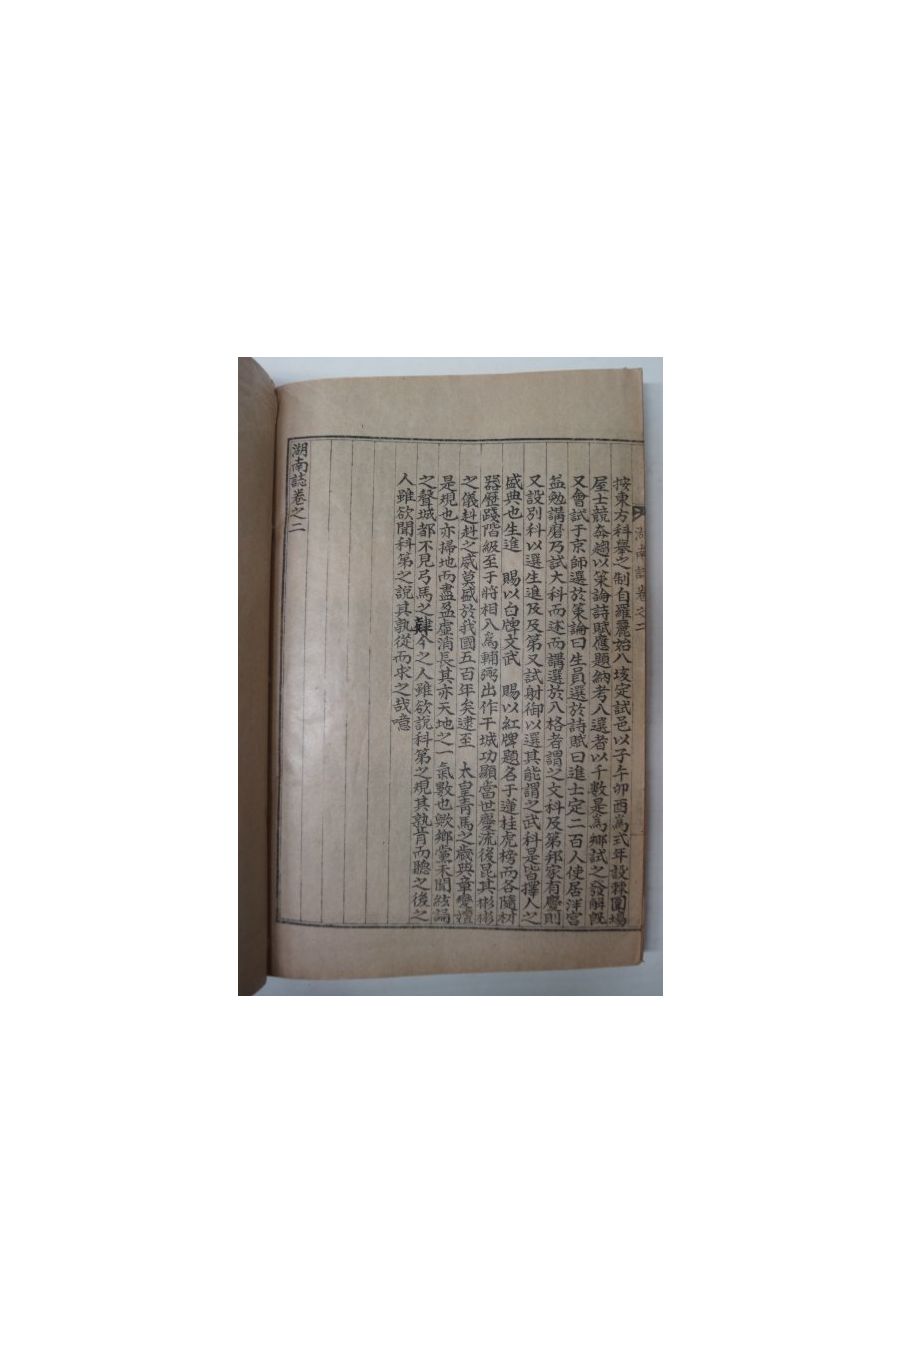 湖南誌卷之二
按東方科擧之制自羅麗始八垓定試邑以子午卯酉爲式年設棘圍場
屋士競奔趨以策論詩賦應題納考入選者以千數是爲鄕試之發解旣
又會試于京師選於策論曰生員選於詩賦曰進士定二百人使居泮宮
益勉講磨乃試大科而述而講選於入格者謂之文科及第邦家有慶則
又設別科以選生進及及第又試射御以選其能謂之武科是皆擇人之
盛典也生進 賜以白牌文武 賜以紅牌題名于蓮桂虎榜而各隨材
器歷踐階級至于將相入爲輔弼出作干城功顯當世慶流後昆其彬彬
之儀赳赳之威莫盛於我國五百年矣逮至 太皇靑馬之歲典章變
是規也亦掃地而盡盈虛消長其亦天地之一氣數也歟鄕黨未聞絃誦
之聲城都不見弓馬之肄今之人雖欲說科第之規其孰肯而聽之後之
人雖欲聞科第之說其孰從而求之哉噫
湖南誌卷之二